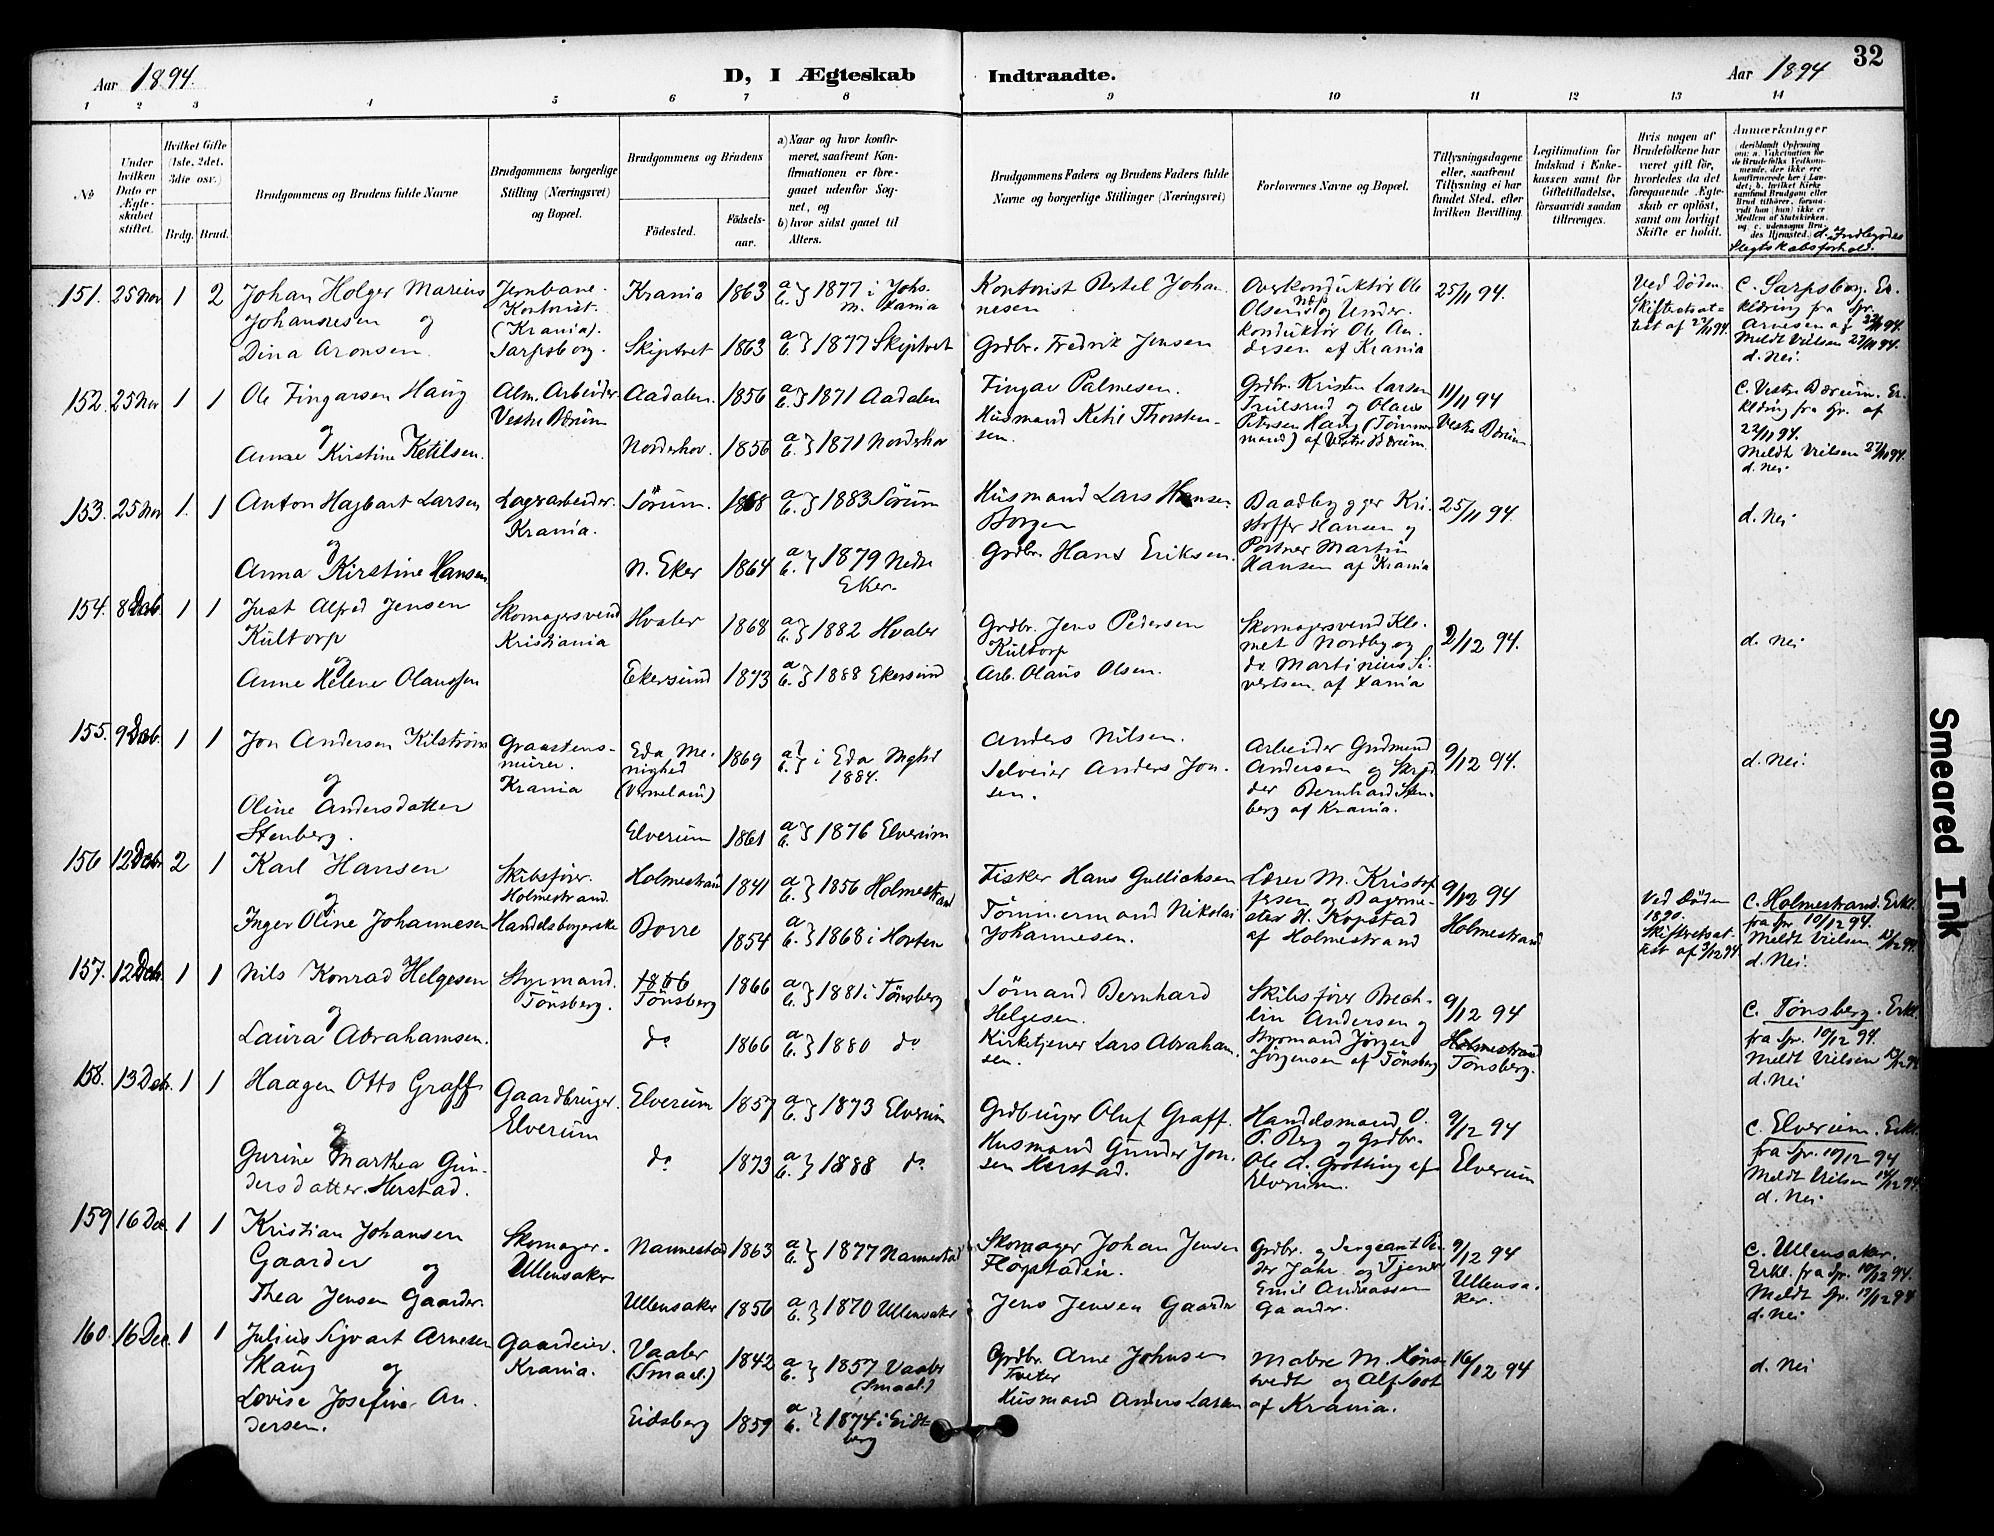 Aar 1894.
D, I Ægteskab Indtraadte.
Aar 1894
32
1 2 3 4 5 6 7 8 9 10 11 12 13 14
No
Under hvilken Dato er Ægteskabet stiftet.
Hvilket Gifte (1ste, 2det, 3die osv.)
Brdg. Brud.
Brudgommens og Brudens fulde Navne
Brudgommens borgerlige Stilling (Næringsvei) og Bopæl.
Brudgommens og Brudens
Födested.
Födsels-aar.
a) Naar og hvor konfirmeret, saafremt Konfirmationen er foregaaet udenfor Sognet, og
b) hvor sidst gaaet til Alters.
Brudgommens Faders og Brudens Faders fulde Navne og borgerlige Stillinger (Næringsvei)
Forlovernes Navne og Bopæl.
Tillysningsdagene eller, saafremt Tillysning ei har fundet Sted, efter hvilken Bevilling.
Legitimation for Indskud i Enkekassen samt for Giftetilladelse, forsaavidt saadan tiltrænges.
Hvis nogen af Brudefolkene har været gift för, hvorledes da det foregaaende Ægteskab er oplöst, samt om lovligt Skifte er holdt.
Anmærkninger
151. 25 Nov 1 2 Johan Holger Marius Johannesen og Dina Aronsen.
Jernbane-Kontorist. (Krania). Sarpsborg.
Krania 1863 a b } 1877 i Johs. m. Xania
Skiptvet 1863 a b } 1877 Skiptvet
Kontorist Bertel Johannesen
Grdbr. Fredrik Jensen
Overkonduktör Ole Olsen og Underkonduktör Ole Andersen af Krania
25/11 94.
Ved Döden. Skifteretsattest af 22/11 94.
C. Sarpsborg. Erklæring fra Spr. Arnesen af 22/11 94. Meldt Vielsen 27/11 94. d. Nei.
152. 25 Nov 1 1 Ole Fingarsen Haug og Anne Kirstine Ketilsen.
Alm. Arbeider Vestre Bærum
Aadalen. 1856 a b } 1871 Aadalen
Norderhov. 1856 a b } 1871 Norderhov
Fingar Palmesen.
Husmand Ketil Thorstensen.
Grdbr. Kristen Larsen Trulsrud og Olaus Petersen Haug (Tömmermand) af Vestre Bærum.
11/11 94 Vestre Bærum
C. Vestre Bærum. Erklæring fra Spr. af 22/11 94. Meldt Vielsen 27/11 94. d. Nei.
153. 25 Nov 1. 1 Anton Hagbart Larsen og Anna Kirstine Hansen
Lagerarbeider. Krania.
Sörum. 1868 a b } 1883 Sörum
N. Eker 1864 a b } 1879 Nedre Eker.
Husmand Lars Hansen Borgen
Grdbr. Hans Eriksen.
Baadbygger Kristoffer Hansen og Portner Martin Hansen af Krania
25/11 94.
d. Nei
154. 8 Decb. 1 1 Just Alfred Jensen Kultorp og Anne Helene Olaussen
Skomagersvend Kristiania
Hvaler 1868 a b } 1882 Hvaler
Ekersund 1873 a b } 1888 Ekersund
Grdbr. Jens Pedersen Kultorp
Arb. Olaus Olsen.
Skomagersvend Klemet Nordby og do. Martinius Sivertsen af Xania
2/12 94.
d. Nei
155. 9 Decb. 1 1 Jon Andersen Kilström og Oline Andersdatter Stenberg.
Graastensmurer. Krania
Eda Menighed (Vermeland) 1869 a b } i Eda Mghd 1884.
Elverum 1861 a b } 1876 Elverum
Anders Nilsen.
Selveier Anders Jonsen.
Arbeider Gudmund Andersen og Skrædder Bernhard Stenberg af Krania.
9/12 94.
d. Nei.
156 12 Decb. 2 1 Karl Hansen og Inger Oline Johannesen
Skibsförer. Holmestrand. Handelsborgerske
Holmestrand 1841 a b } 1856 Holmestrand
Borre 1854 a b } 1868 i Horten
Fisker Hans Gullichsen
Tömmermand Nikolai Johannesen.
Lærer M. Kristoffersen og Bagermester H. Kopstad af Holmestrand
9/12 94 Holmestrand
Ved Döden 1890. Skifteretsattest af 3/12 94.
C. Holmestrand. Erkl. fra Spr. 10/12 94. Meldt Vielsen 13/12 94 d. Nei.
157. 12 Decb. 1 1 Nils Konrad Helgesen og Laura Abrahamsen.
Styrmand. Tönsberg.
1866 Tönsberg 1866 a b } 1881 i Tönsberg
do 1866 a b } 1880 do
Sömand Bernhard Helgesen.
Kirketjener Lars Abrahamsen.
Skibsförer Brechlin Andersen og Styrmand Jörgen Jörgensen af Tönsberg
9/12 94 Holmestrand Tönsberg.
C. Tönsberg. Erkl. fra Spr. 10/12 94. Meldt Vielsen 13/12 94 d. Nei
158. 13 Decb. 1 1 Haagen Otto Graff og Gurine Marthea Gundersdatter Herstad.
Gaardbruger. Elverum
Elverum 1857 a b } 1873 Elverum
do 1873 a b } 1888 do
Grdbruger Oluf Graff.
Husmand Gunder Jonsen Herstad.
Handelsmand O. P. Berg og Grdbr. Ole A. Grötting af Elverum.
9/12 94 Elverum
C. Elverum. Erkl. fra Spr. 10/12 94 Meldt Vielsen 14/12 94. d. Nei
159 16 Dec. 1 1 Kristian Johansen Gaarder og Thea Jensen Gaarder.
Skomager. Ullensaker
Nannestad 1863 a b } 1877 Nannestad
Ullensaker 1856 a b } 1870 Ullensaker
Skomager Johan Jensen Flöpstadin.
Jens Jensen Gaarder
Grdbr. og Sergeant Peder Jahr og Tjener Emil Andreassen Gaarder.
9/12 94 Ullensaker.
C. Ullensaker. Erkl. fra Spr. 10/12 94. Meldt Spr. 17/12 94 d. Nei
160. 16 Dec. 1 1 Julius Sigvart Arnesen Skaug og Lovise Josefine Andersen.
Gaardeier. Krania.
Vaaler (Smaal.) 1842 a b } 1857 Vaaler (Smaal.)
Eidsberg 1859 a b } 1874 i Eidsberg
Grdbr. Arne Johnsen Tveter
Husmand Anders Larsen
Malere M. Tönsvedt og Alf Soot af Krania.
16/12 94
d. Nei
Smeared Ink